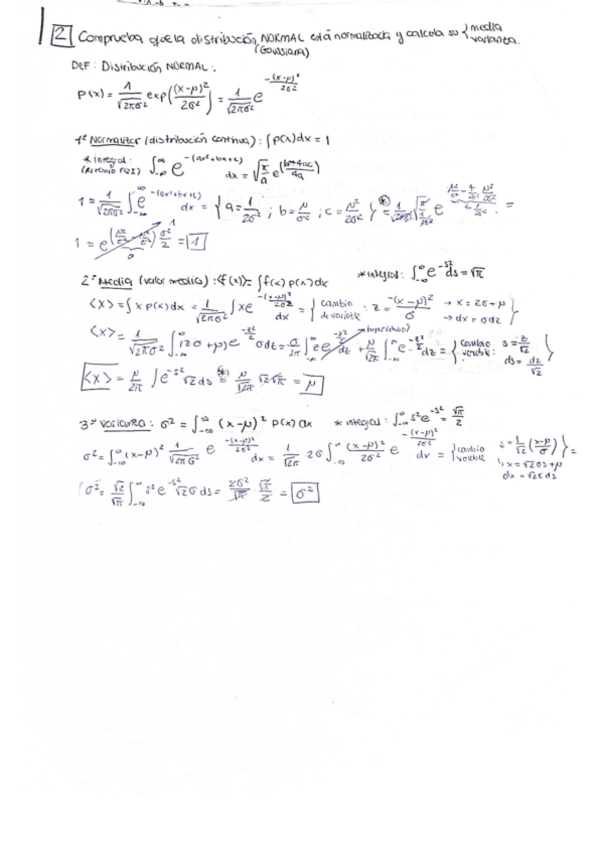 2 Comprueba que la distribución NORMAL está normalizada y calcula su { media varianza.
(Gaussiana)
DEF: Distribución NORMAL:
P(x) = 1/√(2πσ²) exp((x-μ)²/2σ²) = 1/√(2πσ²) e^(-(x-μ)²/2σ²)
1º Normalizar (distribución continua): ∫P(x)dx = 1
* integral: ∫_{-∞}^{∞} e^{-(ax²+bx+c)} dx = √(π/a) e^{(b²+4ac)/4a}
1 = 1/√(2πσ²) ∫_{-∞}^{∞} e^{-(ax²+bx+c)} dx = { a = 1/2σ² ; b = μ/σ² ; c = μ²/2σ² } =
1 = e σ²/2 = 1
2º Media (valor medio): <f(x)> = ∫f(x) p(x) dx * integral: ∫_{-∞}^{∞} e^{-s²} ds = √π
<x> = ∫ x p(x) dx = 1/√(2πσ²) ∫ x e^{-(x-μ)²/2σ²} dx = { cambio de variable : z = -(x-μ)²/σ → x = zσ + μ → dx = σdz }
<x> = 1/√(2πσ²) ∫_{-∞}^{∞} (zσ + μ) e^{-z²/2} σdz = σ/2π ∫_{-∞}^{∞} z e^{-z²/2} dz + μ/√2π ∫_{-∞}^{∞} e^{-z²/2} dz = { cambio variable: s = z/√2 ds = dz/√2 }
<x> = μ/2π ∫ e^{-s²} √2 ds = μ/√2π √2 √π = μ
3º Varianza: σ² = ∫_{-∞}^{∞} (x-μ)² P(x) dx * integral: ∫_{-∞}^{∞} s² e^{-s²} = √π/2
σ² = ∫_{-∞}^{∞} (x-μ)² 1/√(2πσ²) e^{-(x-μ)²/2σ²} dx = 1/√2π 2σ ∫_{-∞}^{∞} (x-μ)²/2σ² e^{-(x-μ)²/2σ²} dx = { cambio variable s = 1/√2 ((x-μ)/σ) ↳ x = √2σs + μ dx = √2σds } =
σ² = √2/√π ∫_{-∞}^{∞} s² e^{-s²} √2σ ds = 2σ²/√π √π/2 = σ²